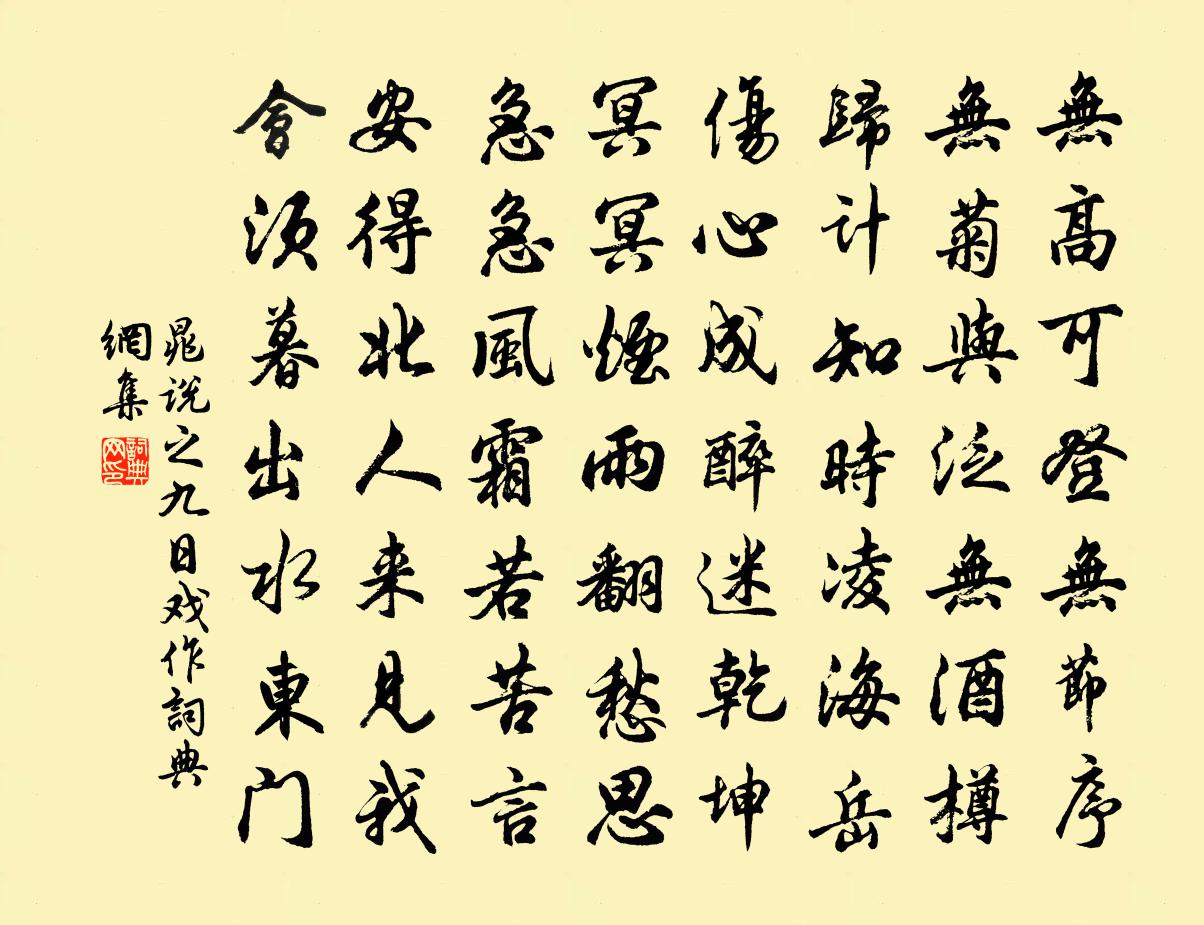 無高可登無節序
無菊與泛無酒樽
歸计知時凌海岳
傷心成醉迷乾坤
冥冥煙雨翻愁思
急急風霜若苦言
安得北人来見我
會須暮出水東门
晁说之九日戏作詞典
網集
詞典
网印